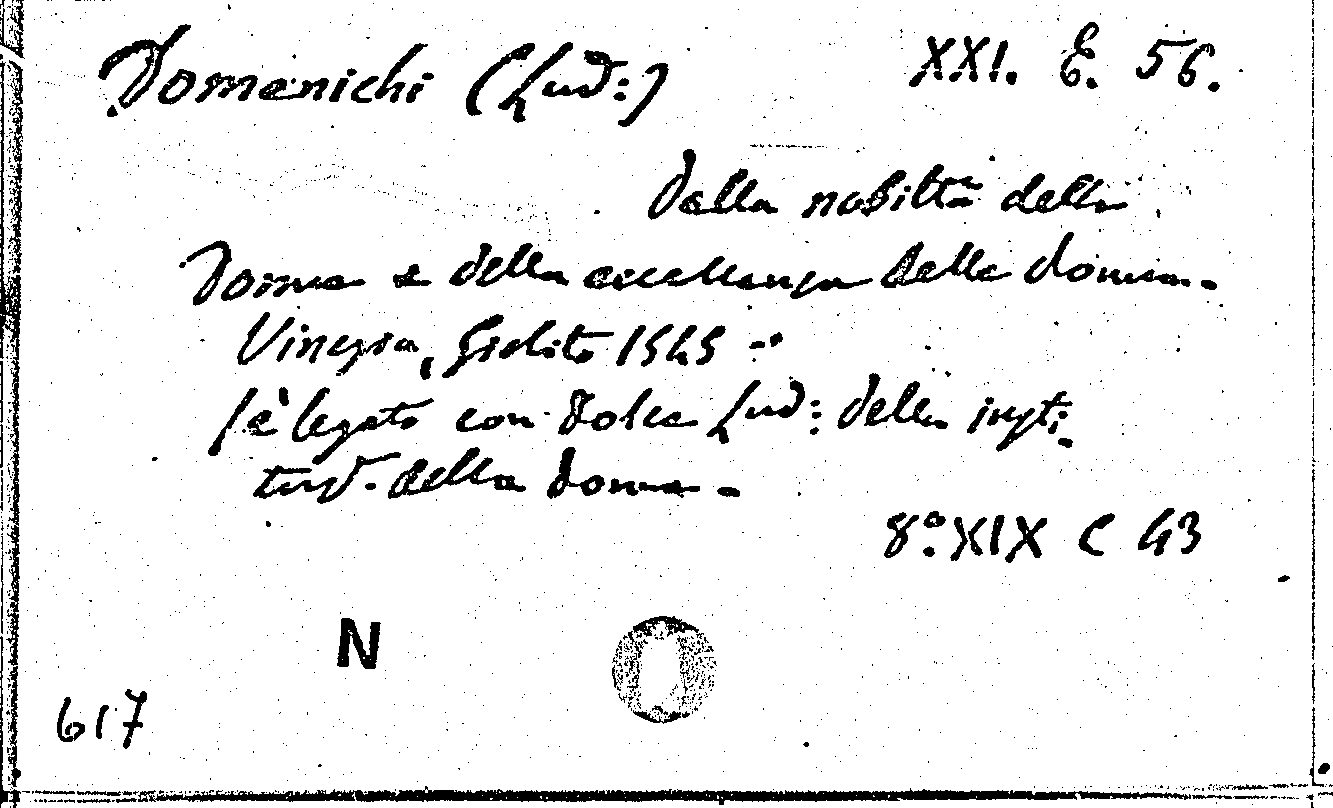 Domenichi (Lud:) XXI. E. 56.
Della nobiltà delle
Donne e della eccellenza delle donne.
Vinegia, Giolito 1545 -
(è legato con Dolce Lud: della insti-
tuz. della donna.
8.° XIX C 43
N
617